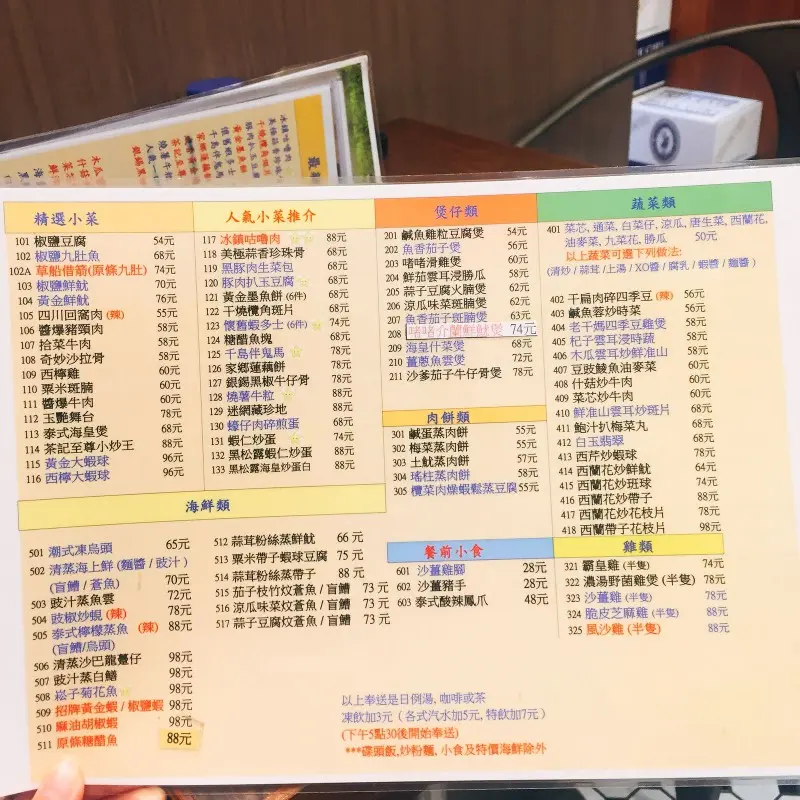 精選小菜
101 椒鹽豆腐 54元
102 椒鹽九肚魚 68元
102A 草船借箭(原條九肚) 74元
103 椒鹽鮮魷 70元
104 黃金鮮魷 76元
105 四川回窩肉 (辣) 55元
106 醬爆豬頸肉 58元
107 拾菜牛肉 58元
108 奇妙沙拉骨 58元
109 西檸雞 60元
110 粟米斑腩 60元
111 醬爆牛肉 60元
112 玉艷舞台 78元
113 泰式海皇煲 68元
114 茶記至尊小炒王 88元
115 黃金大蝦球 96元
116 西檸大蝦球 96元
人氣小菜推介
117 冰鎮咕嚕肉 88元
118 美極蒜香珍珠骨 68元
119 黑豚肉生菜包 68元
120 豚肉扒玉豆腐 68元
121 黃金墨魚餅 (6件) 68元
122 干燒欖角斑片 68元
123 懷舊蝦多士 (6件) 74元
124 糖醋魚塊 68元
125 千島伴鬼馬 78元
126 家鄉蓮藕餅 78元
127 銀錫黑椒牛仔骨 78元
128 燒薯牛粒 78元
129 迷網藏珍地 88元
130 蠔仔肉碎煎蛋 68元
131 蝦仁炒蛋 74元
132 黑松露蝦仁炒蛋 88元
133 黑松露海皇炒蛋白 88元
煲仔類
201 鹹魚雞粒豆腐煲 54元
202 魚香茄子煲 56元
203 啫啫滑雞煲 60元
204 鮮茄雲耳浸勝瓜 58元
205 蒜子豆腐火腩煲 60元
206 涼瓜味菜斑腩煲 60元
207 魚香茄子斑腩煲 62元
208 啫啫介蘭鮮魷煲 74元
209 海皇什菜煲 68元
210 薑蔥魚雲煲 72元
211 沙爹茄子牛仔骨煲 78元
肉餅類
301 鹹蛋蒸肉餅 55元
302 梅菜蒸肉餅 55元
303 土魷蒸肉餅 57元
304 瑤柱蒸肉餅 58元
305 欖菜肉燥蝦鬆蒸豆腐 55元
餐前小食
601 沙薑雞腳 28元
602 沙薑豬手 28元
603 泰式酸辣鳳爪 48元
蔬菜類
401 菜芯, 通菜, 白菜仔, 涼瓜, 唐生菜, 西蘭花,
油麥菜, 九菜花, 勝瓜 50元
以上蔬菜可選下列做法:
(清炒 / 蒜茸 / 上湯 / XO醬 / 腐乳 / 蝦醬 / 麵醬)
402 干扁肉碎四季豆 (辣) 56元
403 鹹魚蓉炒時菜 56元
404 老干媽四季豆雞煲 58元
405 杞子雲耳浸時蔬 58元
406 木瓜雲耳炒鮮淮山 58元
407 豆豉鯪魚油麥菜 60元
408 什菇炒牛肉 60元
409 菜芯炒牛肉 60元
410 鮮淮山雲耳炒斑片 68元
411 鮑汁扒梅菜丸 68元
412 白玉翡翠 68元
413 西芹炒蝦球 78元
414 西蘭花炒鮮魷 64元
415 西蘭花炒斑球 74元
416 西蘭花炒帶子 88元
417 西蘭花炒花枝片 88元
418 西蘭帶子花枝片 98元
雞類
321 霸皇雞 (半隻) 74元
322 濃湯野菌雞煲 (半隻) 78元
323 沙薑雞 (半隻) 78元
324 脆皮芝麻雞 (半隻) 88元
325 風沙雞 (半隻) 88元
海鮮類
501 潮式凍烏頭 65元
502 清蒸海上鮮 (麵醬 / 豉汁)
(盲鰽 / 蒼魚) 70元
503 豉汁蒸魚雲 72元
504 豉椒炒蜆 (辣) 78元
505 泰式檸檬蒸魚 (辣) 88元
(盲鰽/烏頭)
506 清蒸沙巴龍躉仔 98元
507 豉汁蒸白鱔 98元
508 崧子菊花魚 98元
509 招牌黃金蝦 / 椒鹽蝦 98元
510 麻油胡椒蝦 98元
511 原條糖醋魚 88元
512 蒜茸粉絲蒸鮮魷 66 元
513 粟米帶子蝦球豆腐 75 元
514 蒜茸粉絲蒸帶子 88 元
515 茄子枝竹炆蒼魚 / 盲鰽 73 元
516 涼瓜味菜炆蒼魚 / 盲鰽 73 元
517 蒜子豆腐炆蒼魚 / 盲鰽 73 元
以上奉送是日例湯, 咖啡或茶
凍飲加3元 (各式汽水加5元, 特飲加7元)
(下午5點30後開始奉送)
***碟頭飯,炒粉麵, 小食及特價海鮮除外